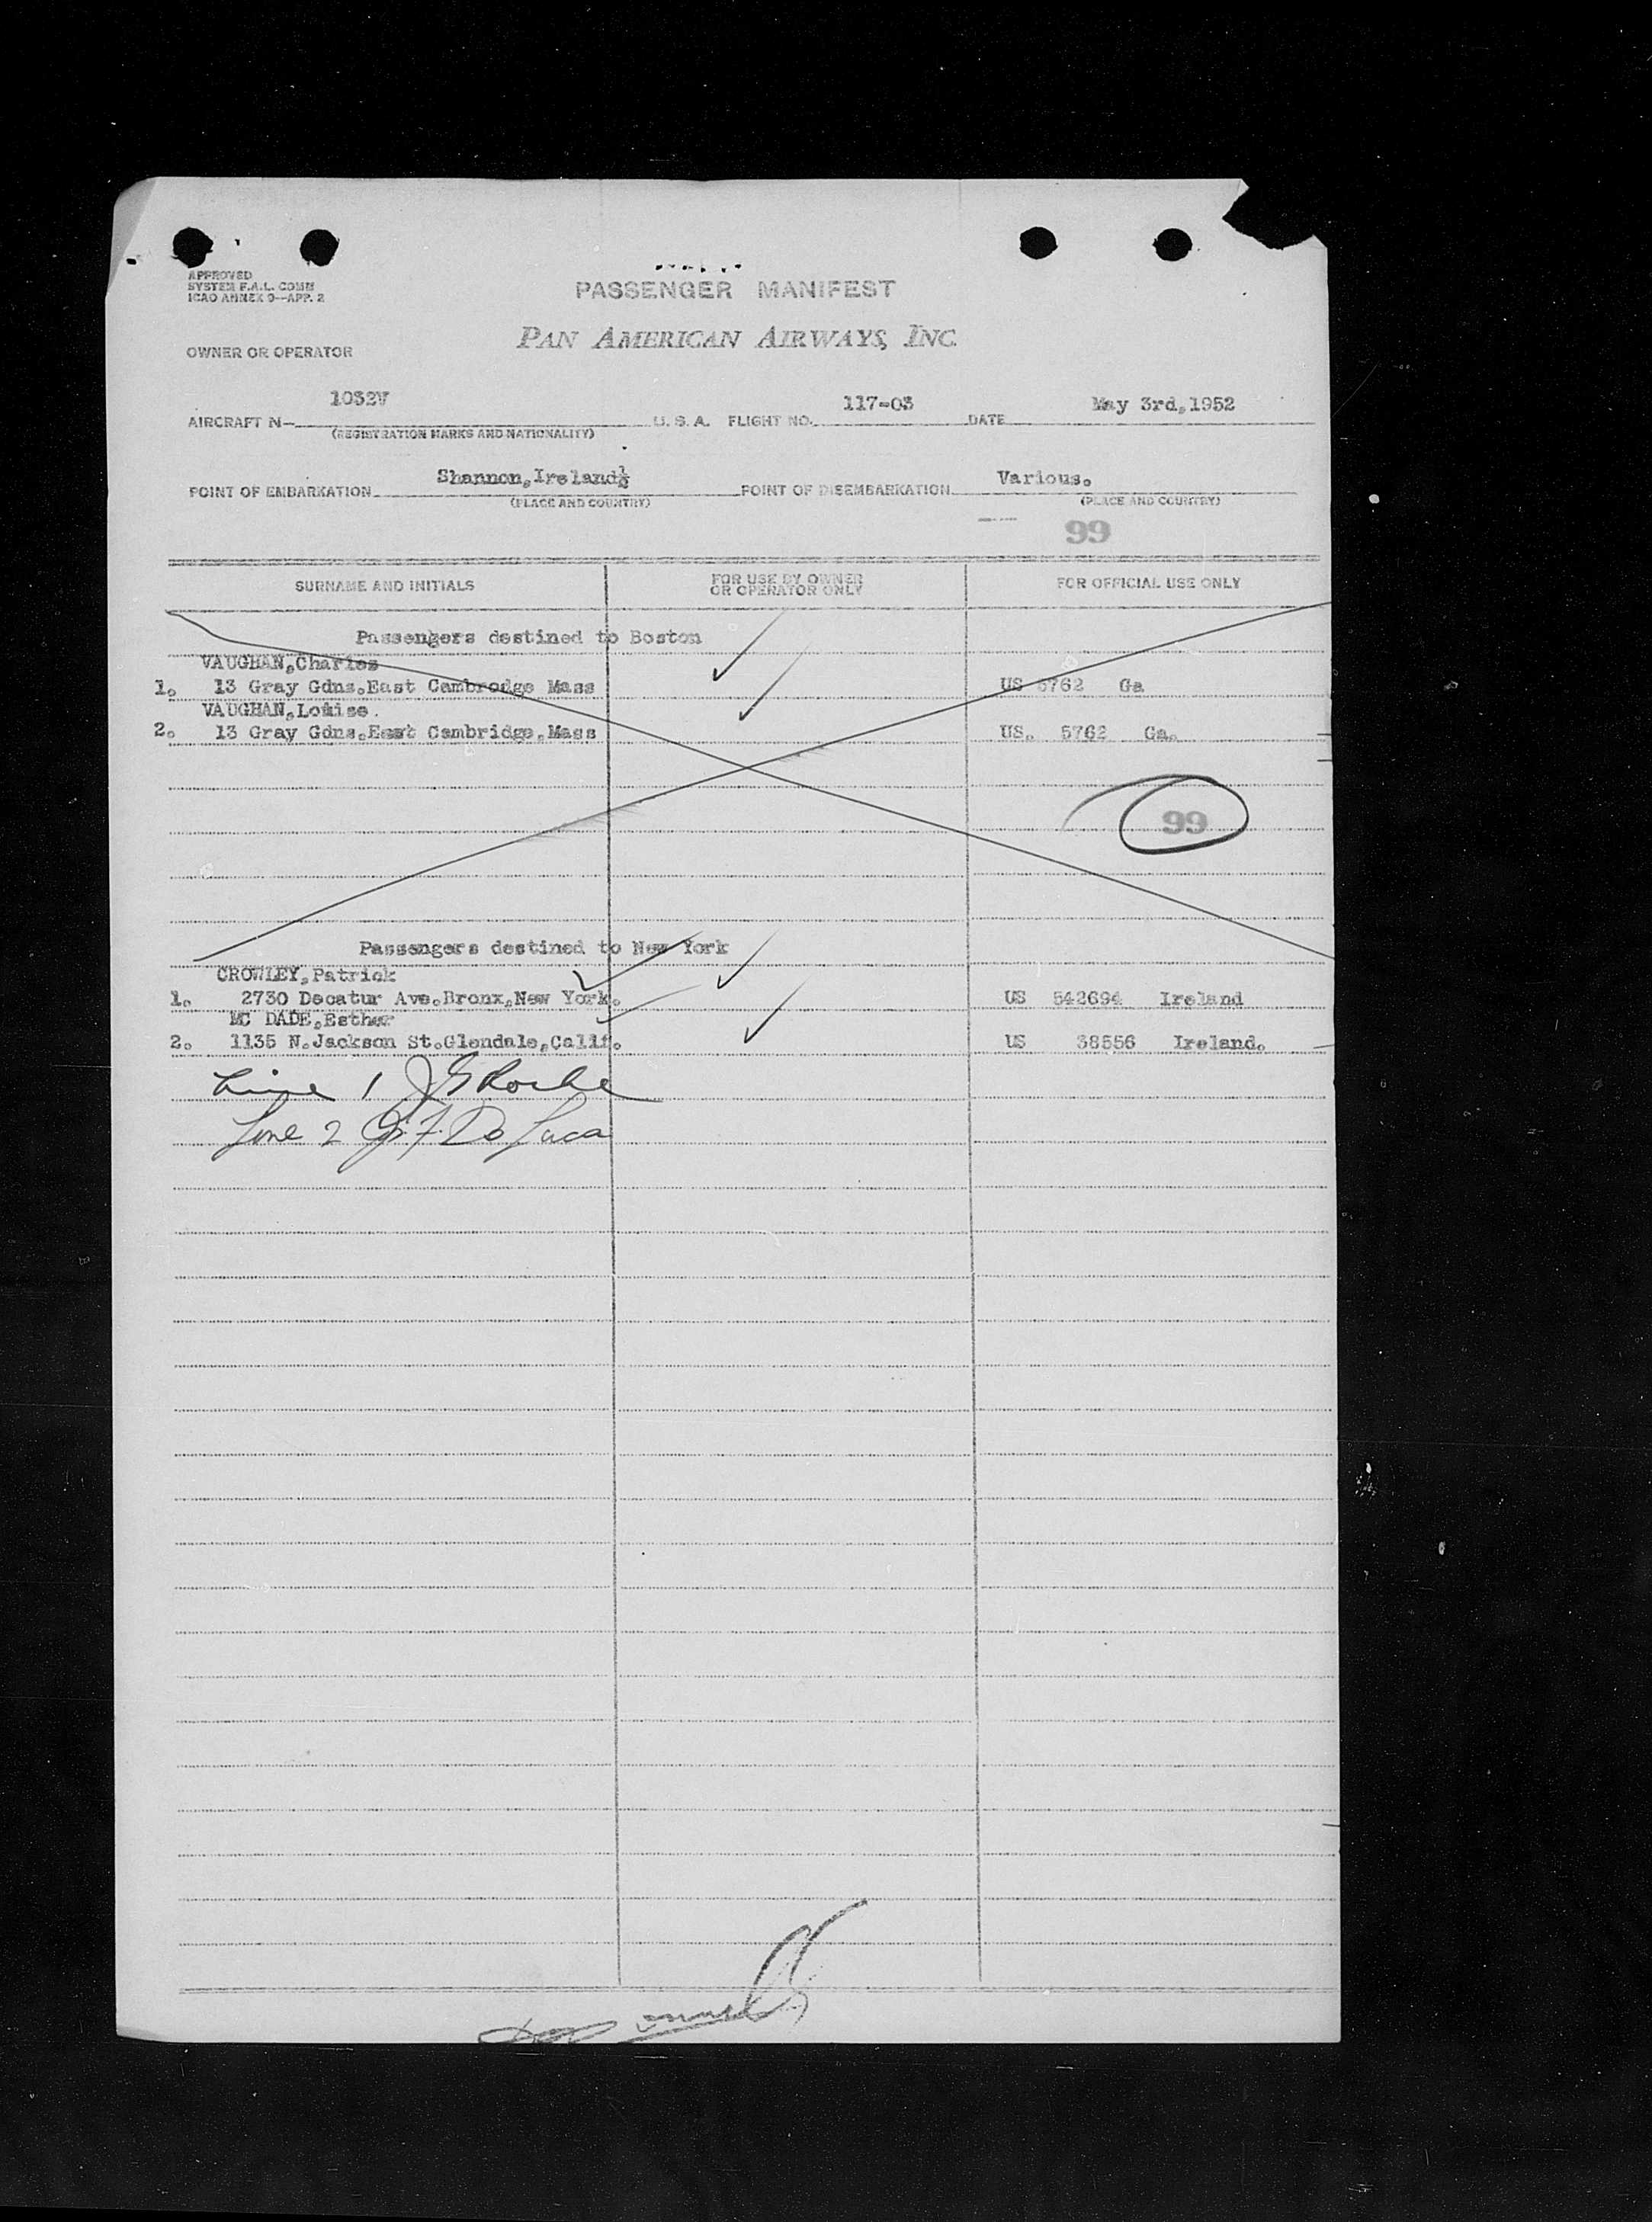 APPROVED
SYSTEM F.A.L. COMM
ICAO ANNEX 9—APP. 2
PASSENGER MANIFEST
PAN AMERICAN AIRWAYS, INC.
OWNER OR OPERATOR
AIRCRAFT N— 1032V U. S. A. FLIGHT NO. 117-03 DATE May 3rd,1952
(REGISTRATION MARKS AND NATIONALITY)
POINT OF EMBARKATION Shannon,Ireland½ POINT OF DISEMBARKATION Various.
(PLACE AND COUNTRY) (PLACE AND COUNTRY)
99
SURNAME AND INITIALS FOR USE BY OWNER OR OPERATOR ONLY FOR OFFICIAL USE ONLY
Passengers destined to Boston
VAUGHAN,Charles
1. 13 Gray Gdns.East Cambrodge Mass US 5762 Ga
VAUGHAN,Louise.
2. 13 Gray Gdns.East Cambridge,Mass US. 5762 Ga.
99
Passengers destined to New York
CROWLEY,Patrick
1. 2730 Decatur Ave.Bronx,New York. US 542694 Ireland
MC DADE,Esther
2. 1135 N.Jackson St.Glendale,Calif. US 38556 Ireland.
Line 1 J G Roche
Line 2 F. De Luca